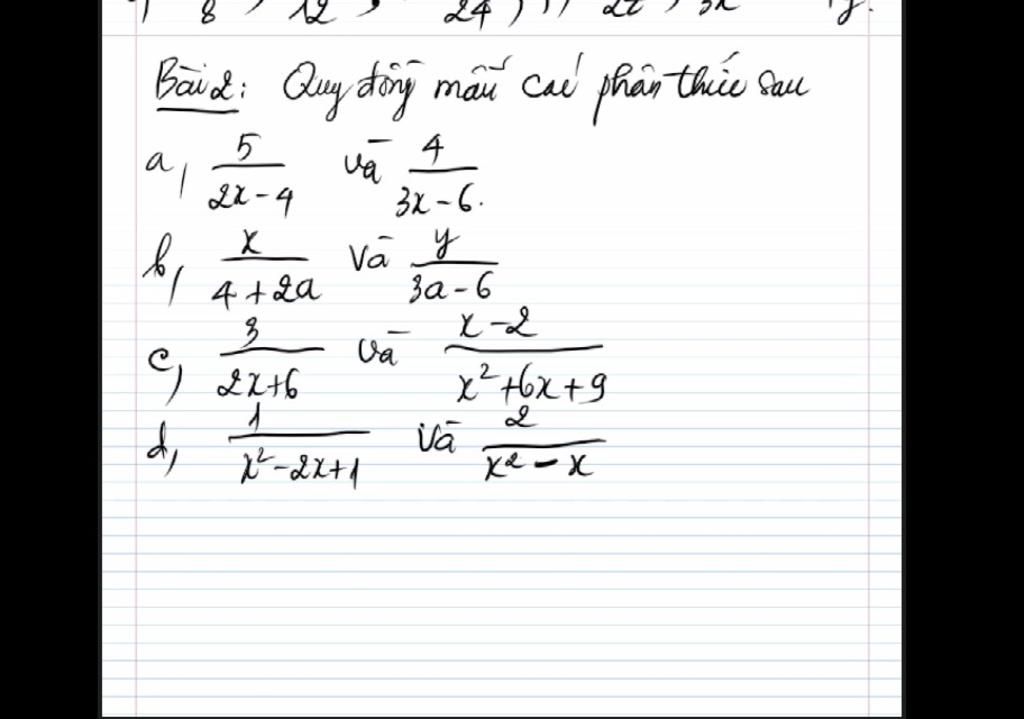 8 , 12 , 24 ,
Bài 2: Quy đồng mẫu các phân thức sau
a, 5/(2x-4) và 4/(3x-6).
b, x/(4+2a) và y/(3a-6)
c, 3/(2x+6) và (x-2)/(x²+6x+9)
d, 1/(x²-2x+1) và 2/(x²-x)